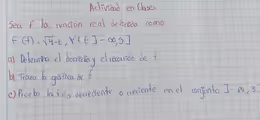 Actividad en Clases
Sea f la función real definida como
f(t) = √4-t, ∀ t ∈ ]-∞, 3]
a) Determine el dominio y el recorrido de f
b) Trace la gráfica de f
c) Pruebe la f es decreciente o creciente en el conjunto ]-∞, 3